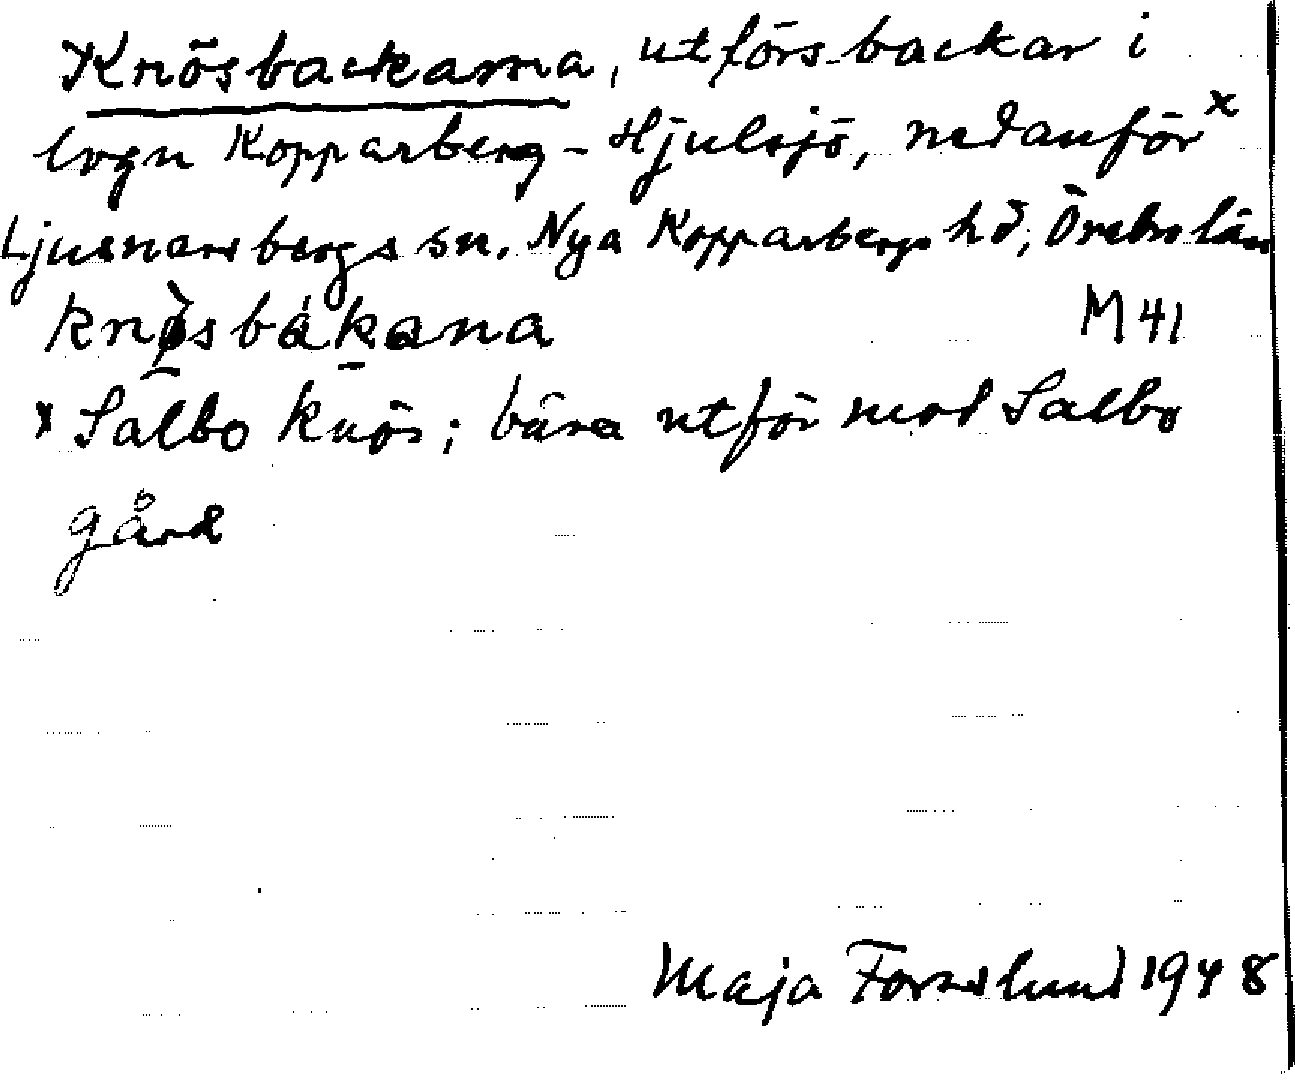 Knösbackarna, utförsbackar i
lvgn Kopparberg - Hjulsjö, nedanför x
Ljusnarsbergs sn. Nya Kopparbergs hd, Örebro län
knø̀sbákana M 41
x Salbo knös; bära utför mot Salbo
gård
Maja Forsslund 1948